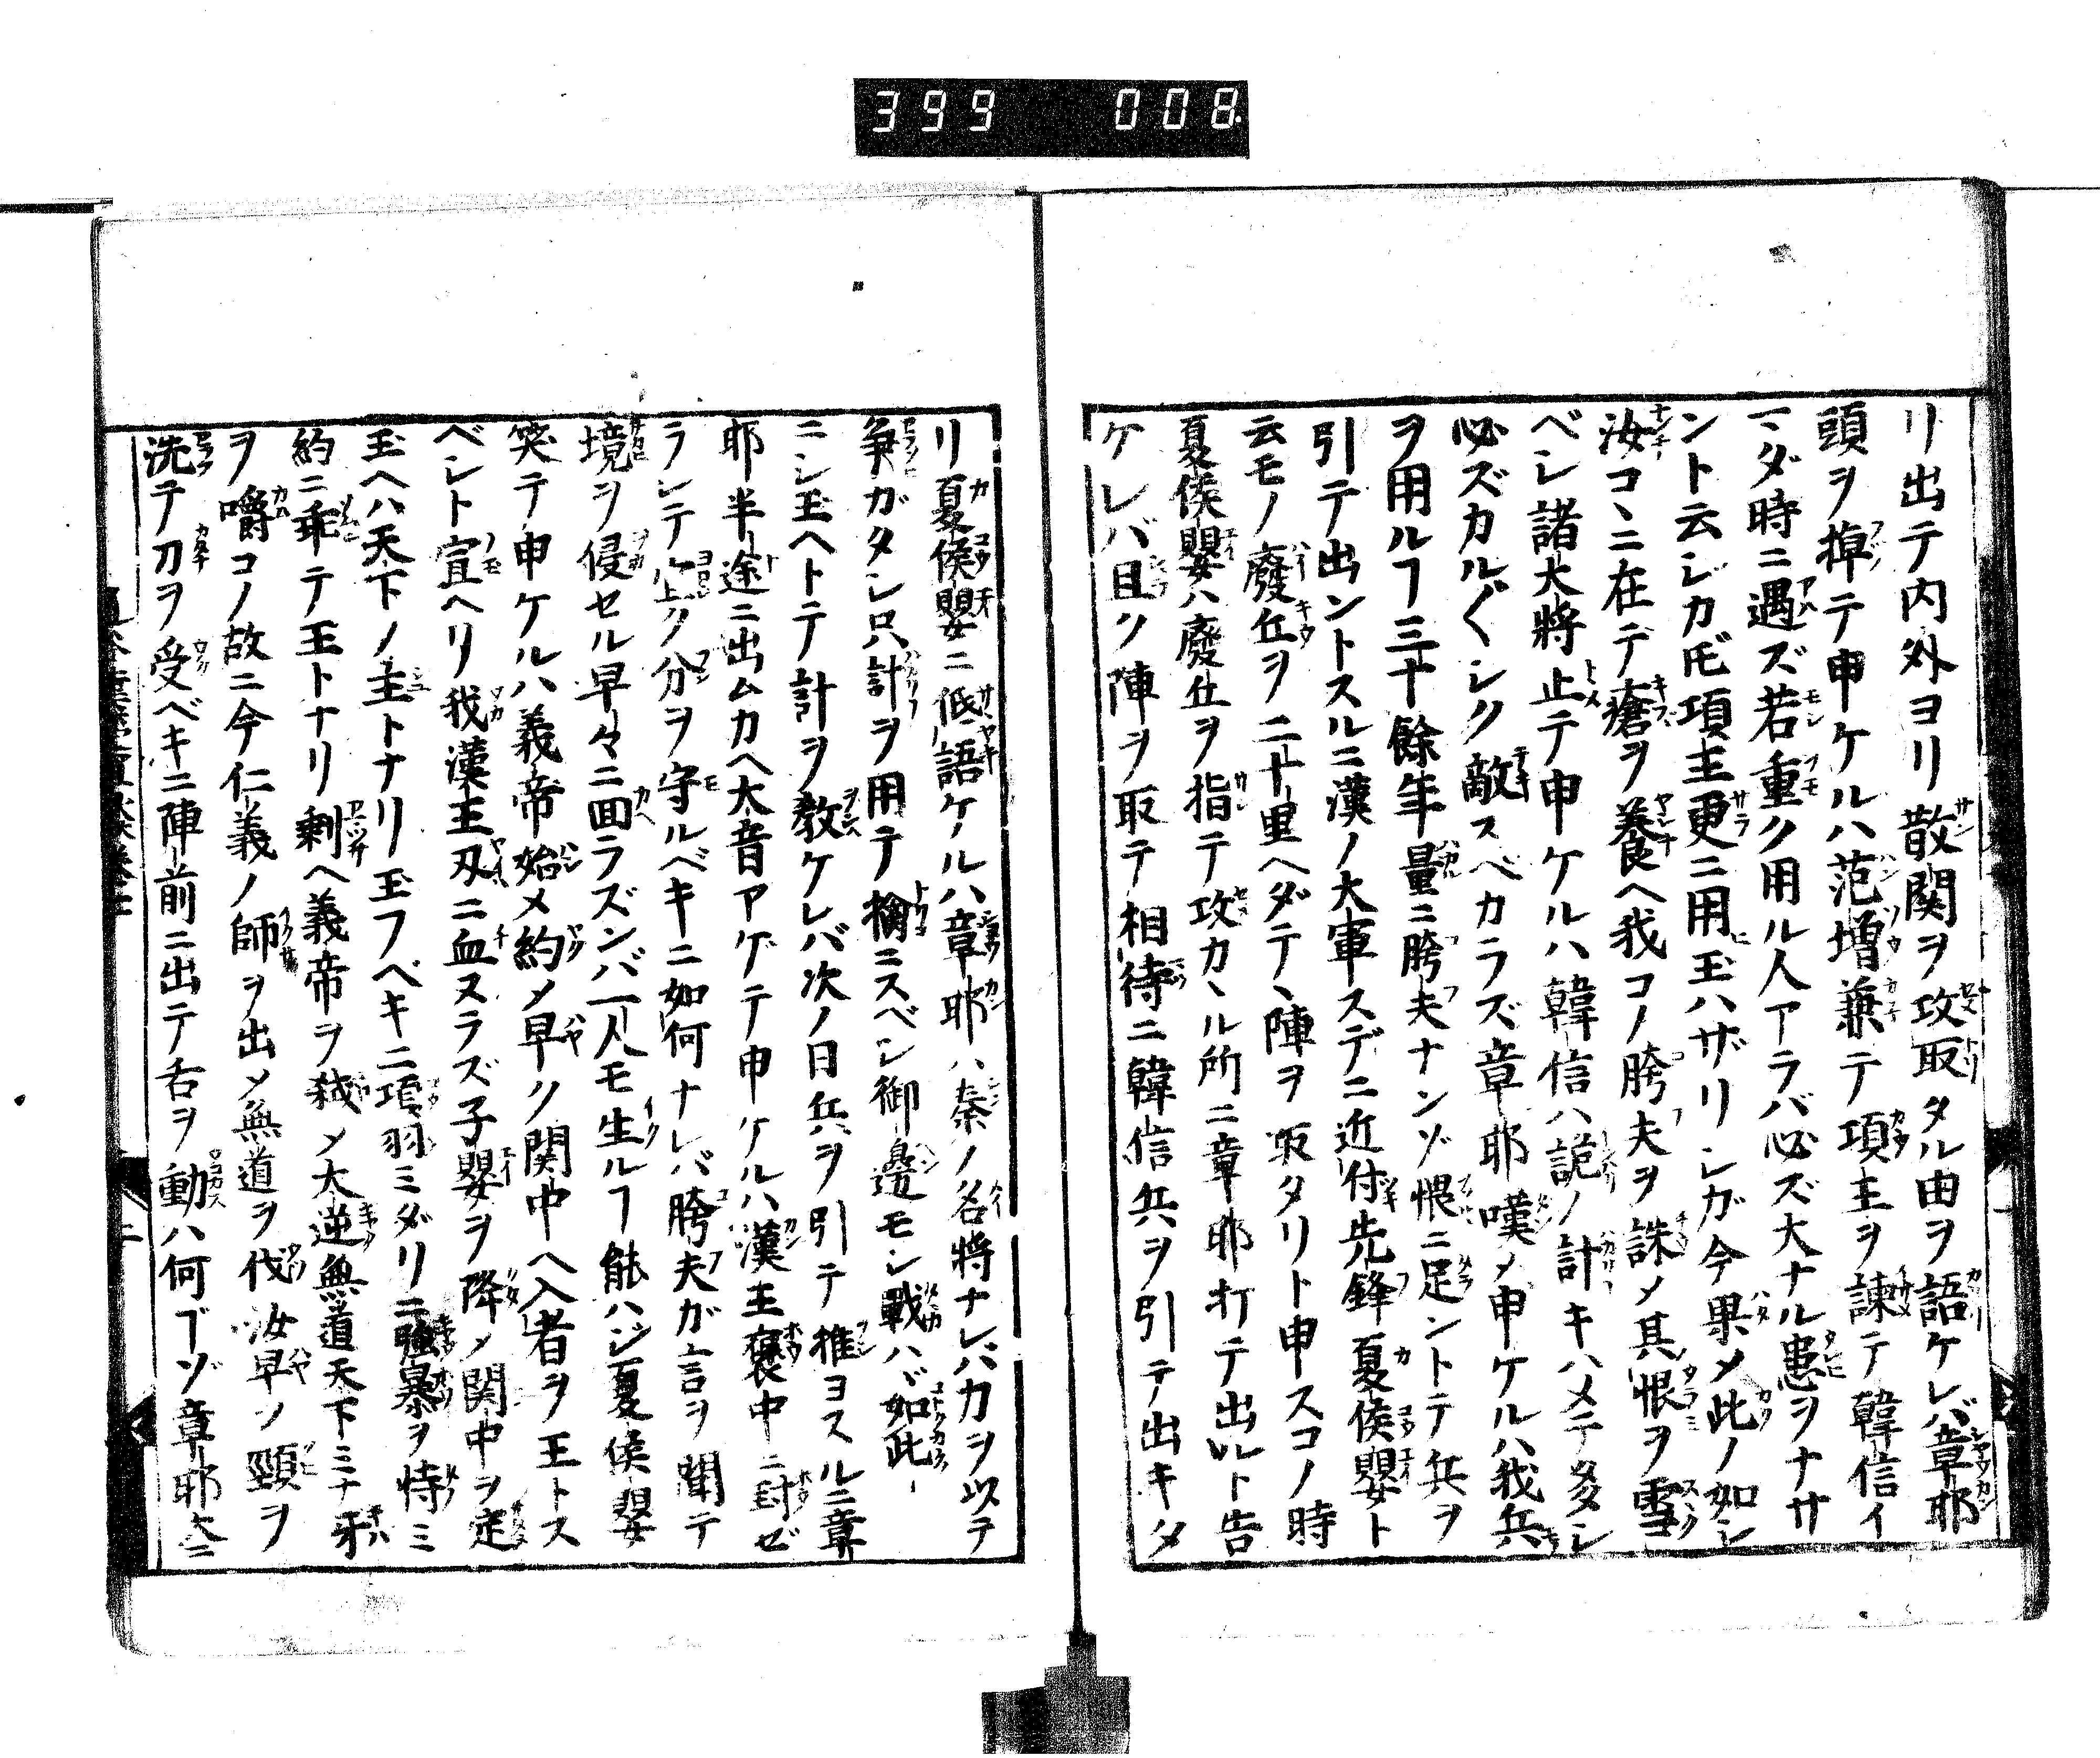 399 008
リ出テ内外ヨリ散関ヲ攻取タル由ヲ語ケレバ章邯
頭ヲ掉テ申ケルハ范増兼テ項王ヲ諫テ韓信イ
マダ時ニ遇ズ若重ク用ル人アラバ必ズ大ナル患ヲナサ
ント云シカ𪜈項王更ニ用玉ハザリシガ今果メ此ノ如シ
汝コヽニ在テ瘡ヲ養ヘ我コノ胯夫ヲ誅メ其恨ヲ雪
ベシ諸大將止テ申ケルハ韓信ハ詭ノ計キハメテ多シ
必ズカル〴〵シク敵スベカラズ章邯嘆メ申ケルハ我兵
ヲ用ルヿ三十餘年量ニ胯夫ナンゾ恨ニ足ントテ兵ヲ
引テ出ントスルニ漢ノ大軍スデニ近付先鋒夏侯嬰ト
云モノ廢丘ヲ二十里ヘダテヽ陣ヲ取タリト申スコノ時
夏侯嬰ハ廢丘ヲ指テ攻カヽル所ニ章邯打テ出ルト告
ケレバ且ク陣ヲ取テ相待ニ韓信兵ヲ引テ出キタ
リ夏侯嬰ニ低語ケルハ章邯ハ秦ノ名將ナレバ力ヲ以テ
争ガタシ只計ヲ用テ擒ニスベシ御邉モシ戰ハヾ如此〻
ニシ玉ヘトテ計ヲ教ケレバ次ノ日兵ヲ引テ推ヨスルニ章
邯半途ニ出ムカヘ大音アゲテ申ケルハ漢王褒中ニ封ゼ
ラレテ止ク分ヲ守ルベキニ如何ナレバ胯夫ガ言ヲ聞テ
境ヲ侵セル早々ニ回ラズンバ一人モ生ルヿ能ハジ夏侯嬰
笑テ申ケルハ義帝始メ約メ早ク関中ヘ入者ヲ王トス
ベシト宣ヘリ我漢王刄ニ血ヌラズ子嬰ヲ降メ関中ヲ定
玉ヘハ天下ノ主トナリ玉フベキニ項羽ミダリニ強暴ヲ恃ミ
約ニ乖テ王トナリ剰ヘ義帝ヲ弑メ大逆無道天下ミナ牙
ヲ嚼コノ故ニ今仁義ノ師ヲ出メ無道ヲ伐汝早ク頸ヲ
洗テ刀ヲ受ベキニ陣前ニ出テ舌ヲ動ハ何ヿゾ章邯大ニ
二